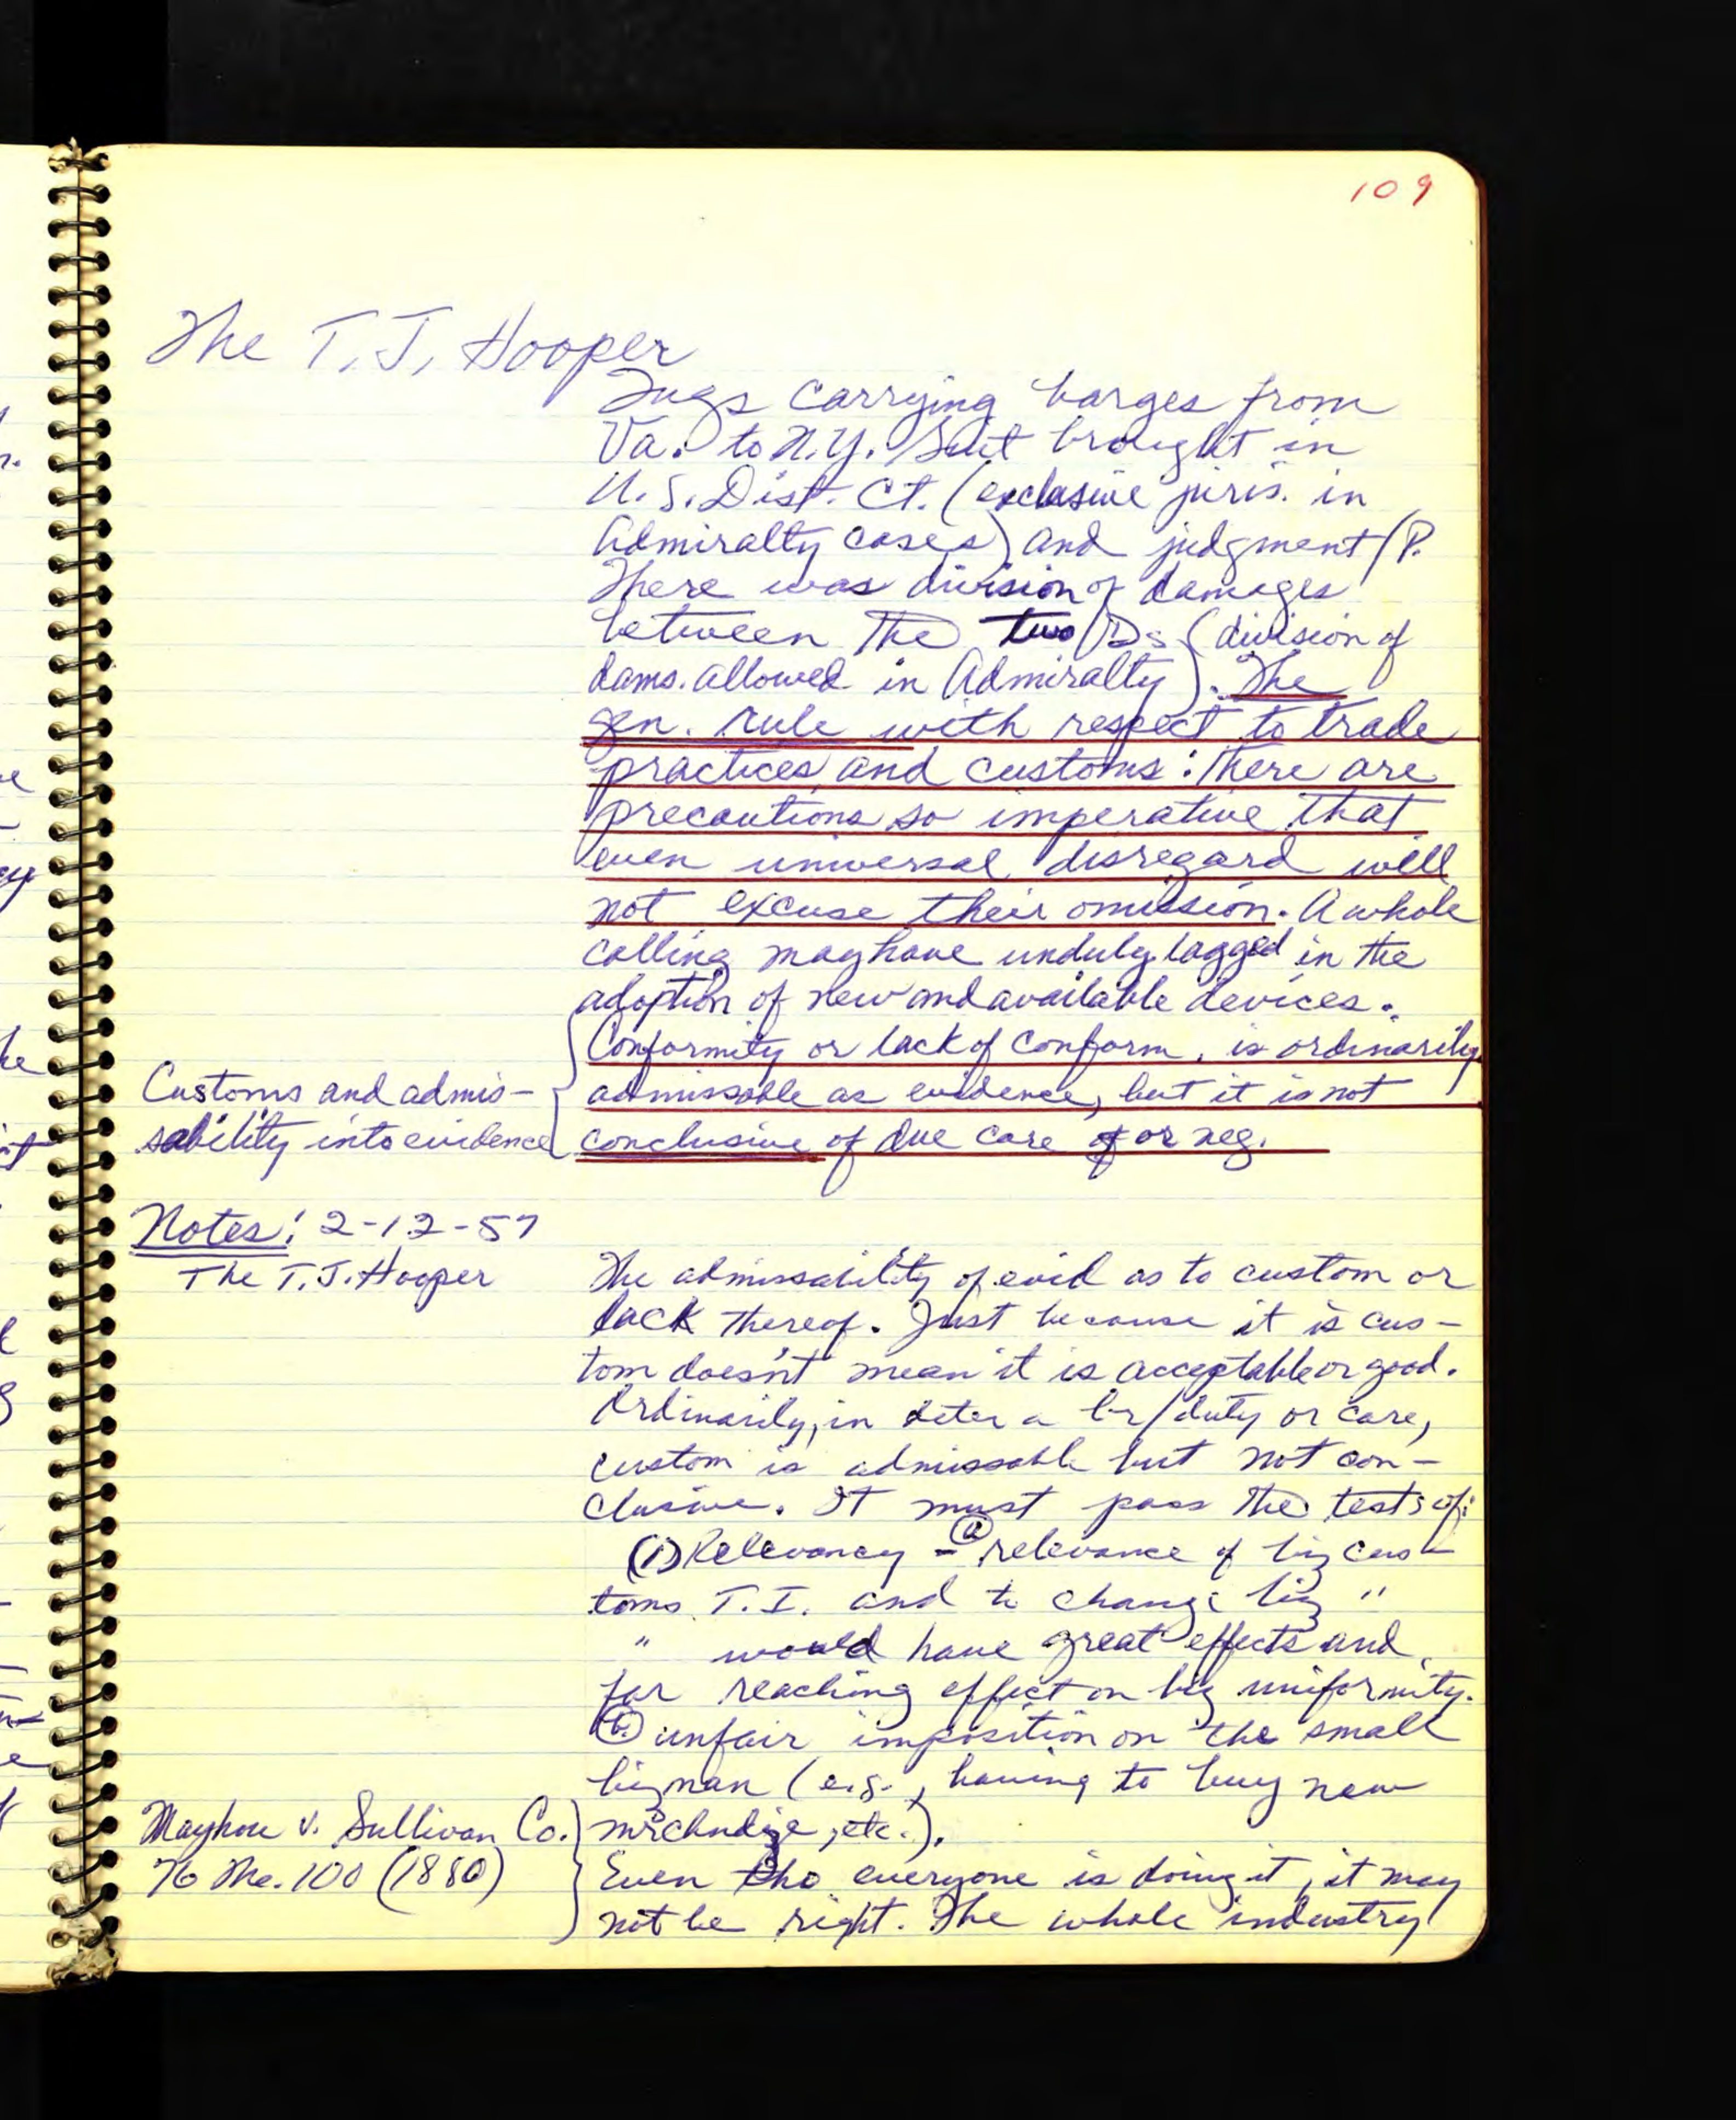 109
The T. J. Hooper
Tugs carrying barges from
Va. to N.Y. Suit brought in
U.S. Dist. Ct. (exclusive juris. in
Admiralty cases) and judgment/P.
There was division of damages
between the two Ds (division of
dams. allowed in Admiralty). The
gen. rule with respect to trade
practices and customs: There are
precautions so imperative that
even universal disregard will
not excuse their omission. A whole
calling may have unduly lagged in the
adoption of new and available devices.
Conformity or lack of conform. is ordinarily
Customs and admis- admissable as evidence, but it is not
sability into evidence conclusive of due care or neg.
Notes: 2-12-57
The T. J. Hooper The admissability of evid as to custom or
lack thereof. Just because it is cus-
tom doesn't mean it is acceptable or good.
Ordinarily, in deter a br/duty or care,
custom is admissable but not con-
clusive. It must pass the tests of:
(1) Relevancy - (a) relevance of biz cus-
toms T.I. and to change biz "
" would have great effects and
far reaching effect on biz uniformity.
(b) unfair imposition on the small
bizman (e.g., having to buy new
Mayhue v. Sullivan Co. mrchndize, etc.).
76 Me. 100 (1880) Even tho everyone is doing it, it may
not be right. The whole industry